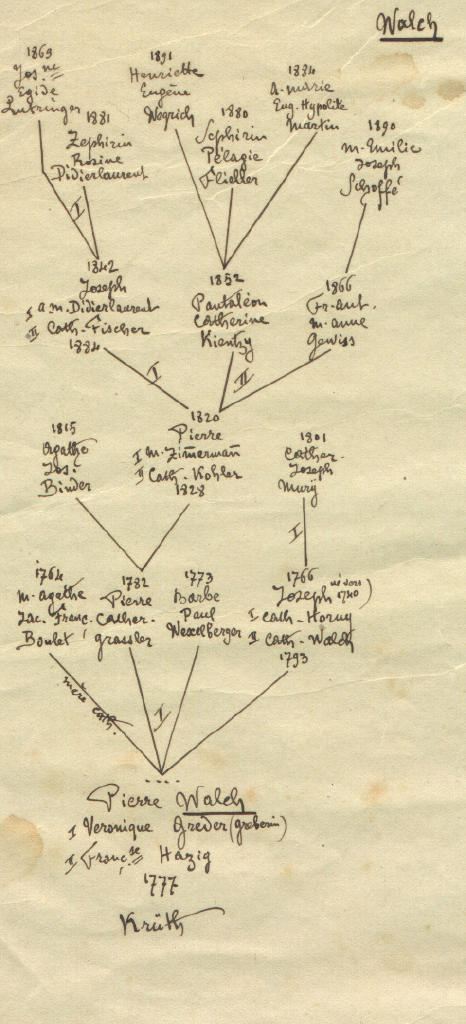 Walch
1863
Jos.ne
Egide
Lutringer
1881
Zephirin
Rosine
Didierlaurent
1891
Henriette
Eugène
Wegrich
1880
Sephirin
Pélagie
Flieller
1884
a-marie
Eug. Hypolite
Martin
1890
m-Emilie
Joseph
Schoffé
I
1842
Joseph
I a m-Didierlaurent
II Cath-Fischer
1884
1852
Pantaléon
Catherine
Kientzy
1866
Fr-ant.
m-anne
Gewiss
I
II
1820
Pierre
I m-Zimermañ
II Cath-Kohler
1828
1815
Agathe
Jos.
Binder
1801
Cather-
Joseph
Murÿ
I
1764
m-agathe
Jac. Franc.
Boulet
1782
Pierre
Cather-
grassler
1773
Barbe
Paul
Wexelberger
1766
Joseph né vers 1740)
I Cath-Hornÿ
II Cath-Walch
1793
mère cath.
I
....
Pierre Walch
I Veronique Greder (greberin)
I Franç.se Hazig
1777
Krüth